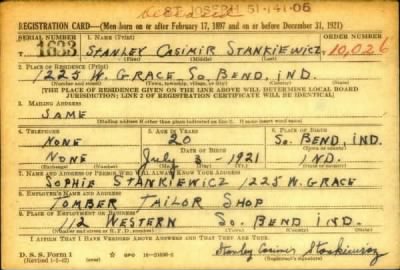 ST. JOSEPH 51-141-06
REGISTRATION CARD—(Men born on or after February 17, 1897 and on or before December 31, 1921)
SERIAL NUMBER 1. NAME (Print) ORDER NUMBER
1633 STANLEY CASIMIR STANKIEWICZ 10,026
(First) (Middle) (Last)
2. PLACE OF RESIDENCE (Print)
1225 W. GRACE SO. BEND, IND.
(Number and street) (Town, township, village, or city) (County) (State)
[THE PLACE OF RESIDENCE GIVEN ON THE LINE ABOVE WILL DETERMINE LOCAL BOARD
JURISDICTION; LINE 2 OF REGISTRATION CERTIFICATE WILL BE IDENTICAL]
3. MAILING ADDRESS
SAME
[Mailing address if other than place indicated on line 2. If same insert word same]
4. TELEPHONE 5. AGE IN YEARS 6. PLACE OF BIRTH
NONE 20 SO. BEND, IND.
DATE OF BIRTH (Town or county)
NONE July 3 1921 IND.
(Mo.) (Day) (Yr.) (State or country)
7. NAME AND ADDRESS OF PERSON WHO WILL ALWAYS KNOW YOUR ADDRESS
SOPHIE STANKIEWICZ 1225 W. GRACE
8. EMPLOYER'S NAME AND ADDRESS
TOMBER TAILOR SHOP
9. PLACE OF EMPLOYMENT OR BUSINESS
112 WESTERN SO. BEND IND.
(Number and street or R. F. D. number) (Town) (County) (State)
I AFFIRM THAT I HAVE VERIFIED ABOVE ANSWERS AND THAT THEY ARE TRUE.
D. S. S. Form 1
(Revised 1-1-42) (over) GPO Stanley Casimir Stankiewicz